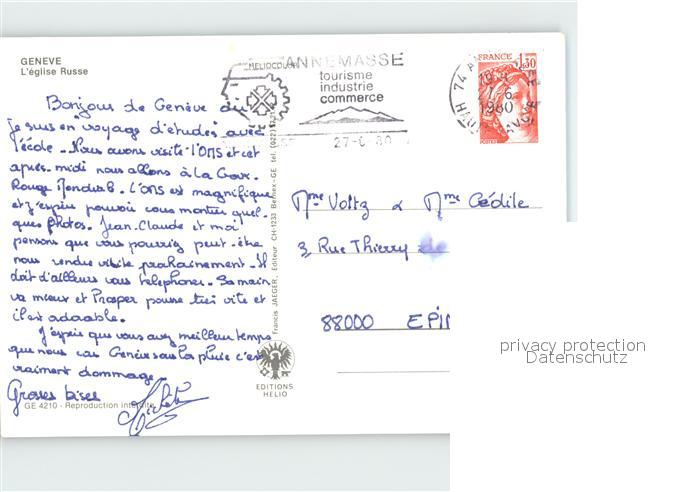 GENEVE
L'église Russe
HELIOCOLOR
ANNEMASSE
tourisme
industrie
commerce
27-6 80
74 A
HTE SAVOIE
1980
FRANCE
1,30
POSTES
Bonjour de Genève où
je suis en "voyage d'études" avec
l'école. Nous avons visité l'OMS et cet
après-midi nous allons à la Croix-
Rouge Mondiale. L'OMS est magnifique
et j'espère pouvoir vous montrer quel-
ques photos. Jean-Claude et moi
pensons que vous pourriez peut-être
nous rendre visite prochainement. Il
doit d'ailleurs vous téléphoner. Sa main
va mieux et Prosper pousse très vite et
il est adorable.
J'espère que vous avez meilleur temps
que nous car Genève sous la pluie c'est
vraiment dommage.
Grosses bises
GE 4210 - Reproduction interdite
Francis JAEGER, Editeur CH-1233 Bernex-GE tel. (022)
EDITIONS
HELIO
Mme Voltz & Mme Cédile
3, Rue Thierry de
88000 EPIN
privacy protection
Datenschutz